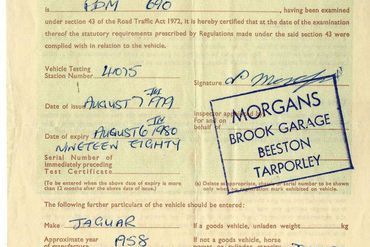 PDM 690
, having been examined
under section 43 of the Road Traffic Act 1972, it is hereby certified that at the date of the examination
thereof the statutory requirements prescribed by Regulations made under the said section 43 were
complied with in relation to the vehicle.
Vehicle Testing
Station Number
Signature
Date of issue AUGUST 7TH
Date of expiry AUGUST 6TH 1980
NINETEEN EIGHTY
MORGANS
BROOK GARAGE
BEESTON
TARPORLEY
Serial Number of
immediately preceding
Test Certificate
(To be entered when the above date of expiry is more
than 12 months after the above date of issue.)
The following further particulars of the vehicle should be entered:
Make JAGUAR
If a goods vehicle, unladen weight kg
Approximate year
of manufacture 1958
If not a goods vehicle, horse